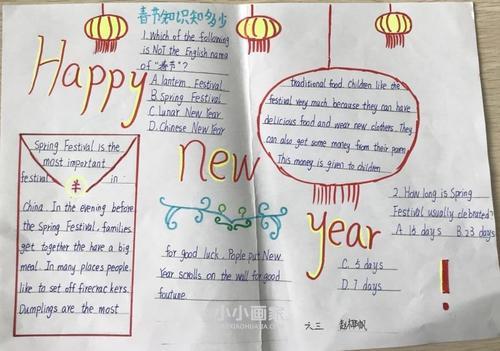 春节知识知多少
Happy
new
year
!
1. Which of the following
is NOT the English name
of "春节"?
A. lantern Festival
B. Spring Festival
C. Lunar New Year
D. Chinese New Year
Spring Festival is the
most important
festival in
China. In the evening before
the Spring Festival, families
get together the have a big
meal. In many places people
like to set off firecrackers.
Dumplings are the most
traditional food. Children like the
festival very much, because they can have
delicious food and wear new clothers. They
can also get some money from their paren
This money is given to children
for good luck. Pople put New
Year scrolls on the wall for good
foutune.
2. How long is Spring
Festival usually clebrated?
A. 15 days B. 23 days
C. 5 days
D. 7 days
小小画家